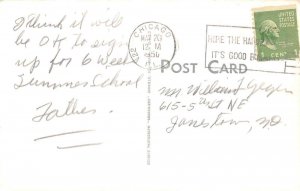 I think it will
be OK to sign
up for 6 Week
Summer School
Father
CHICAGO
MAY 20
12 M
1956
IT'S GOOD
1 CENT
POST CARD
Mr Willard
615-5th St NE
Jamestown, ND.